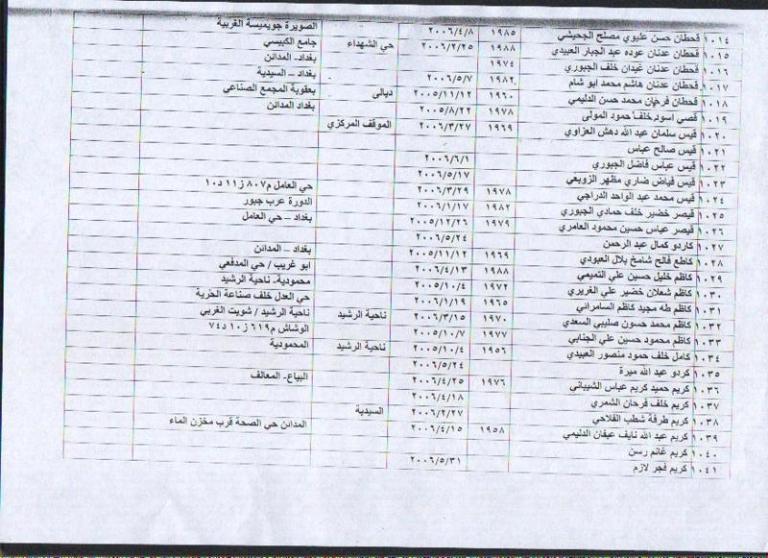 ١٠١٤ قحطان حسن عليوي مصلح الجحيشي ١٩٨٥ ٢٠٠٦/٤/٨ الصويرة جويميسة الغربية
١٠١٥ قحطان عدنان عوده عبد الجبار العبيدي ١٩٨٨ ٢٠٠٦/٢/٢٥ حي الشهداء جامع الكبيسي
١٠١٦ قحطان عدنان غيدان خلف الجبوري ١٩٧٤ بغداد- المدائن
١٠١٧ قحطان عدنان هاشم محمد ابو شام ١٩٨٢ ٢٠٠٦/٥/٧ بغداد – السيدية
١٠١٨ قحطان فرحان محمد حسن الدليمي ١٩٦٠ ٢٠٠٥/١١/١٢ ديالى بعقوبة المجمع الصناعي
١٠١٩ قصي اسود خلف حمود المولى ١٩٧٨ ٢٠٠٥/٨/٢٢ بغداد المدائن
١٠٢٠ قيس سلمان عبد الله دهش العزاوي ١٩٦٩ ٢٠٠٦/٣/٢٧ الموقف المركزي
١٠٢١ قيس صالح عباس
١٠٢٢ قيس عباس فاضل الجبوري ٢٠٠٦/٦/١
١٠٢٣ قيس فياض ضاري مظهر الزوبعي ٢٠٠٦/٥/١٧
١٠٢٤ قيس محمد عبد الواحد الدراجي ١٩٧٨ ٢٠٠٦/٣/٢٩ حي العامل م٨٠٧ ز١١ د١٠
١٠٢٥ قيصر خضير خلف حمادي الجبوري ١٩٨٢ ٢٠٠٦/١/١٧ الدورة عرب جبور
١٠٢٦ قيصر عباس حسين محمود العامري ١٩٧٩ ٢٠٠٥/١٢/٢٦ بغداد – حي العامل
١٠٢٧ كاردو كمال عبد الرحمن ٢٠٠٦/٥/٢٤
١٠٢٨ كاطع فالح شامخ بلال العبودي ١٩٦٩ ٢٠٠٥/١١/١٢ بغداد – المدائن
١٠٢٩ كاظم خليل حسين علي التميمي ١٩٨٨ ٢٠٠٦/٤/١٣ ابو غريب / حي المدفعي
١٠٣٠ كاظم شعلان خضير علي الغريري ١٩٧٢ ٢٠٠٥/١٠/٤ محمودية- ناحية الرشيد
١٠٣١ كاظم طه مجيد كاظم السامرائي ١٩٦٥ ٢٠٠٦/١/١٩ حي العدل خلف صناعة الحرية
١٠٣٢ كاظم محمد حسون صليبي السعدي ١٩٧٠ ٢٠٠٦/٣/١٥ ناحية الرشيد ناحية الرشيد / شويت الغربي
١٠٣٣ كاظم محمود حسين علي الجنابي ١٩٧٧ ٢٠٠٥/١٠/٧ الوشاش م٦١٩ ز١٠ د٧٤
١٠٣٤ كامل خلف حمود منصور العبيدي ١٩٥٦ ٢٠٠٥/١٠/٤ ناحية الرشيد المحمودية
١٠٣٥ كردو عبد الله ميرة ٢٠٠٦/٥/٢٤
١٠٣٦ كريم حميد كريم عباس الشيباني ١٩٧٦ ٢٠٠٦/٤/٢٥ البياع- المعالف
١٠٣٧ كريم خلف فرحان الشمري ٢٠٠٦/٤/١٨
١٠٣٨ كريم طرفة شطب الفلاحي ٢٠٠٦/٢/٢٧ السيدية
١٠٣٩ كريم عبد الله نايف عيفان الدليمي ١٩٥٨ ٢٠٠٦/٤/١٥ المدائن حي الصحة قرب مخزن الماء
١٠٤٠ كريم غانم رسن
١٠٤١ كريم فجر لازم ٢٠٠٦/٥/٣١